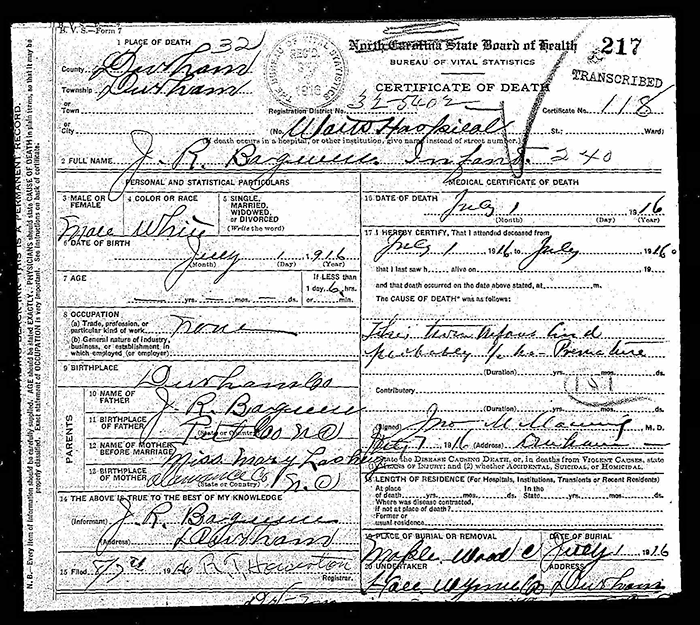 B. V. S.—Form 7
1 PLACE OF DEATH 32
County Durham
Township Durham
or
Town
or
City
BUREAU OF VITAL STATISTICS
REC'D.
1916
North Carolina State Board of Health
BUREAU OF VITAL STATISTICS
CERTIFICATE OF DEATH
217
TRANSCRIBED
Registration District No. 32-5402 Certificate No. 118
(No. Watts Hospital St.; Ward)
(If death occurs in a hospital, or other institution, give name instead of street number.)
2 FULL NAME J. R. Infant 240
PERSONAL AND STATISTICAL PARTICULARS
3 MALE OR FEMALE
Male
4 COLOR OR RACE
White
5 SINGLE, MARRIED, WIDOWED, or DIVORCED
(Write the word)
6 DATE OF BIRTH
July 1 1916
(Month) (Day) (Year)
7 AGE
yrs. mos. ds.
If LESS than
1 day, 6 hrs.
or min.
8 OCCUPATION
(a) Trade, profession, or particular kind of work none
(b) General nature of industry, business, or establishment in which employed (or employer)
9 BIRTHPLACE
Durham Co
PARENTS
10 NAME OF FATHER J. R.
11 BIRTHPLACE OF FATHER Pitt Co N C
(State or Country)
12 NAME OF MOTHER BEFORE MARRIAGE Miss Mary
13 BIRTHPLACE OF MOTHER Alamance Co. N C
(State or Country)
14 THE ABOVE IS TRUE TO THE BEST OF MY KNOWLEDGE
(Informant) J. R.
(Address) Durham
15 Filed 1916 R. T. Howerton
Registrar.
MEDICAL CERTIFICATE OF DEATH
16 DATE OF DEATH
July 1 1916
(Month) (Day) (Year)
17 I HEREBY CERTIFY, That I attended deceased from
July 1 1916 to July 1916
that I last saw h alive on 19
and that death occurred on the date above stated, at m.
The CAUSE OF DEATH* was as follows:
This twin
probably Premature
(Duration) yrs. mos. ds.
151
Contributory
(Duration) yrs. mos. ds.
(Signed) Jno. M. Manning M. D.
7 1916 (Address) Durham
*State the DISEASE CAUSING DEATH, or, in deaths from VIOLENT CAUSES, state (1) MEANS OF INJURY; and (2) whether ACCIDENTAL, SUICIDAL, or HOMICIDAL.
18 LENGTH OF RESIDENCE (For Hospitals, Institutions, Transients or Recent Residents)
At place of death yrs. mos. ds. In the State yrs. mos. ds.
Where was disease contracted, if not at place of death?
Former or usual residence
19 PLACE OF BURIAL OR REMOVAL
Maple Wood C
DATE OF BURIAL
July 1 1916
20 UNDERTAKER
Hall Wynne Co
ADDRESS
Durham
N. B.—Every item of information should be carefully supplied. AGE should be stated EXACTLY. PHYSICIANS should state CAUSE OF DEATH in plain terms, so that it may be properly classified. Exact statement of OCCUPATION is very important. See instructions on back of certificate.
THIS IS A PERMANENT RECORD.